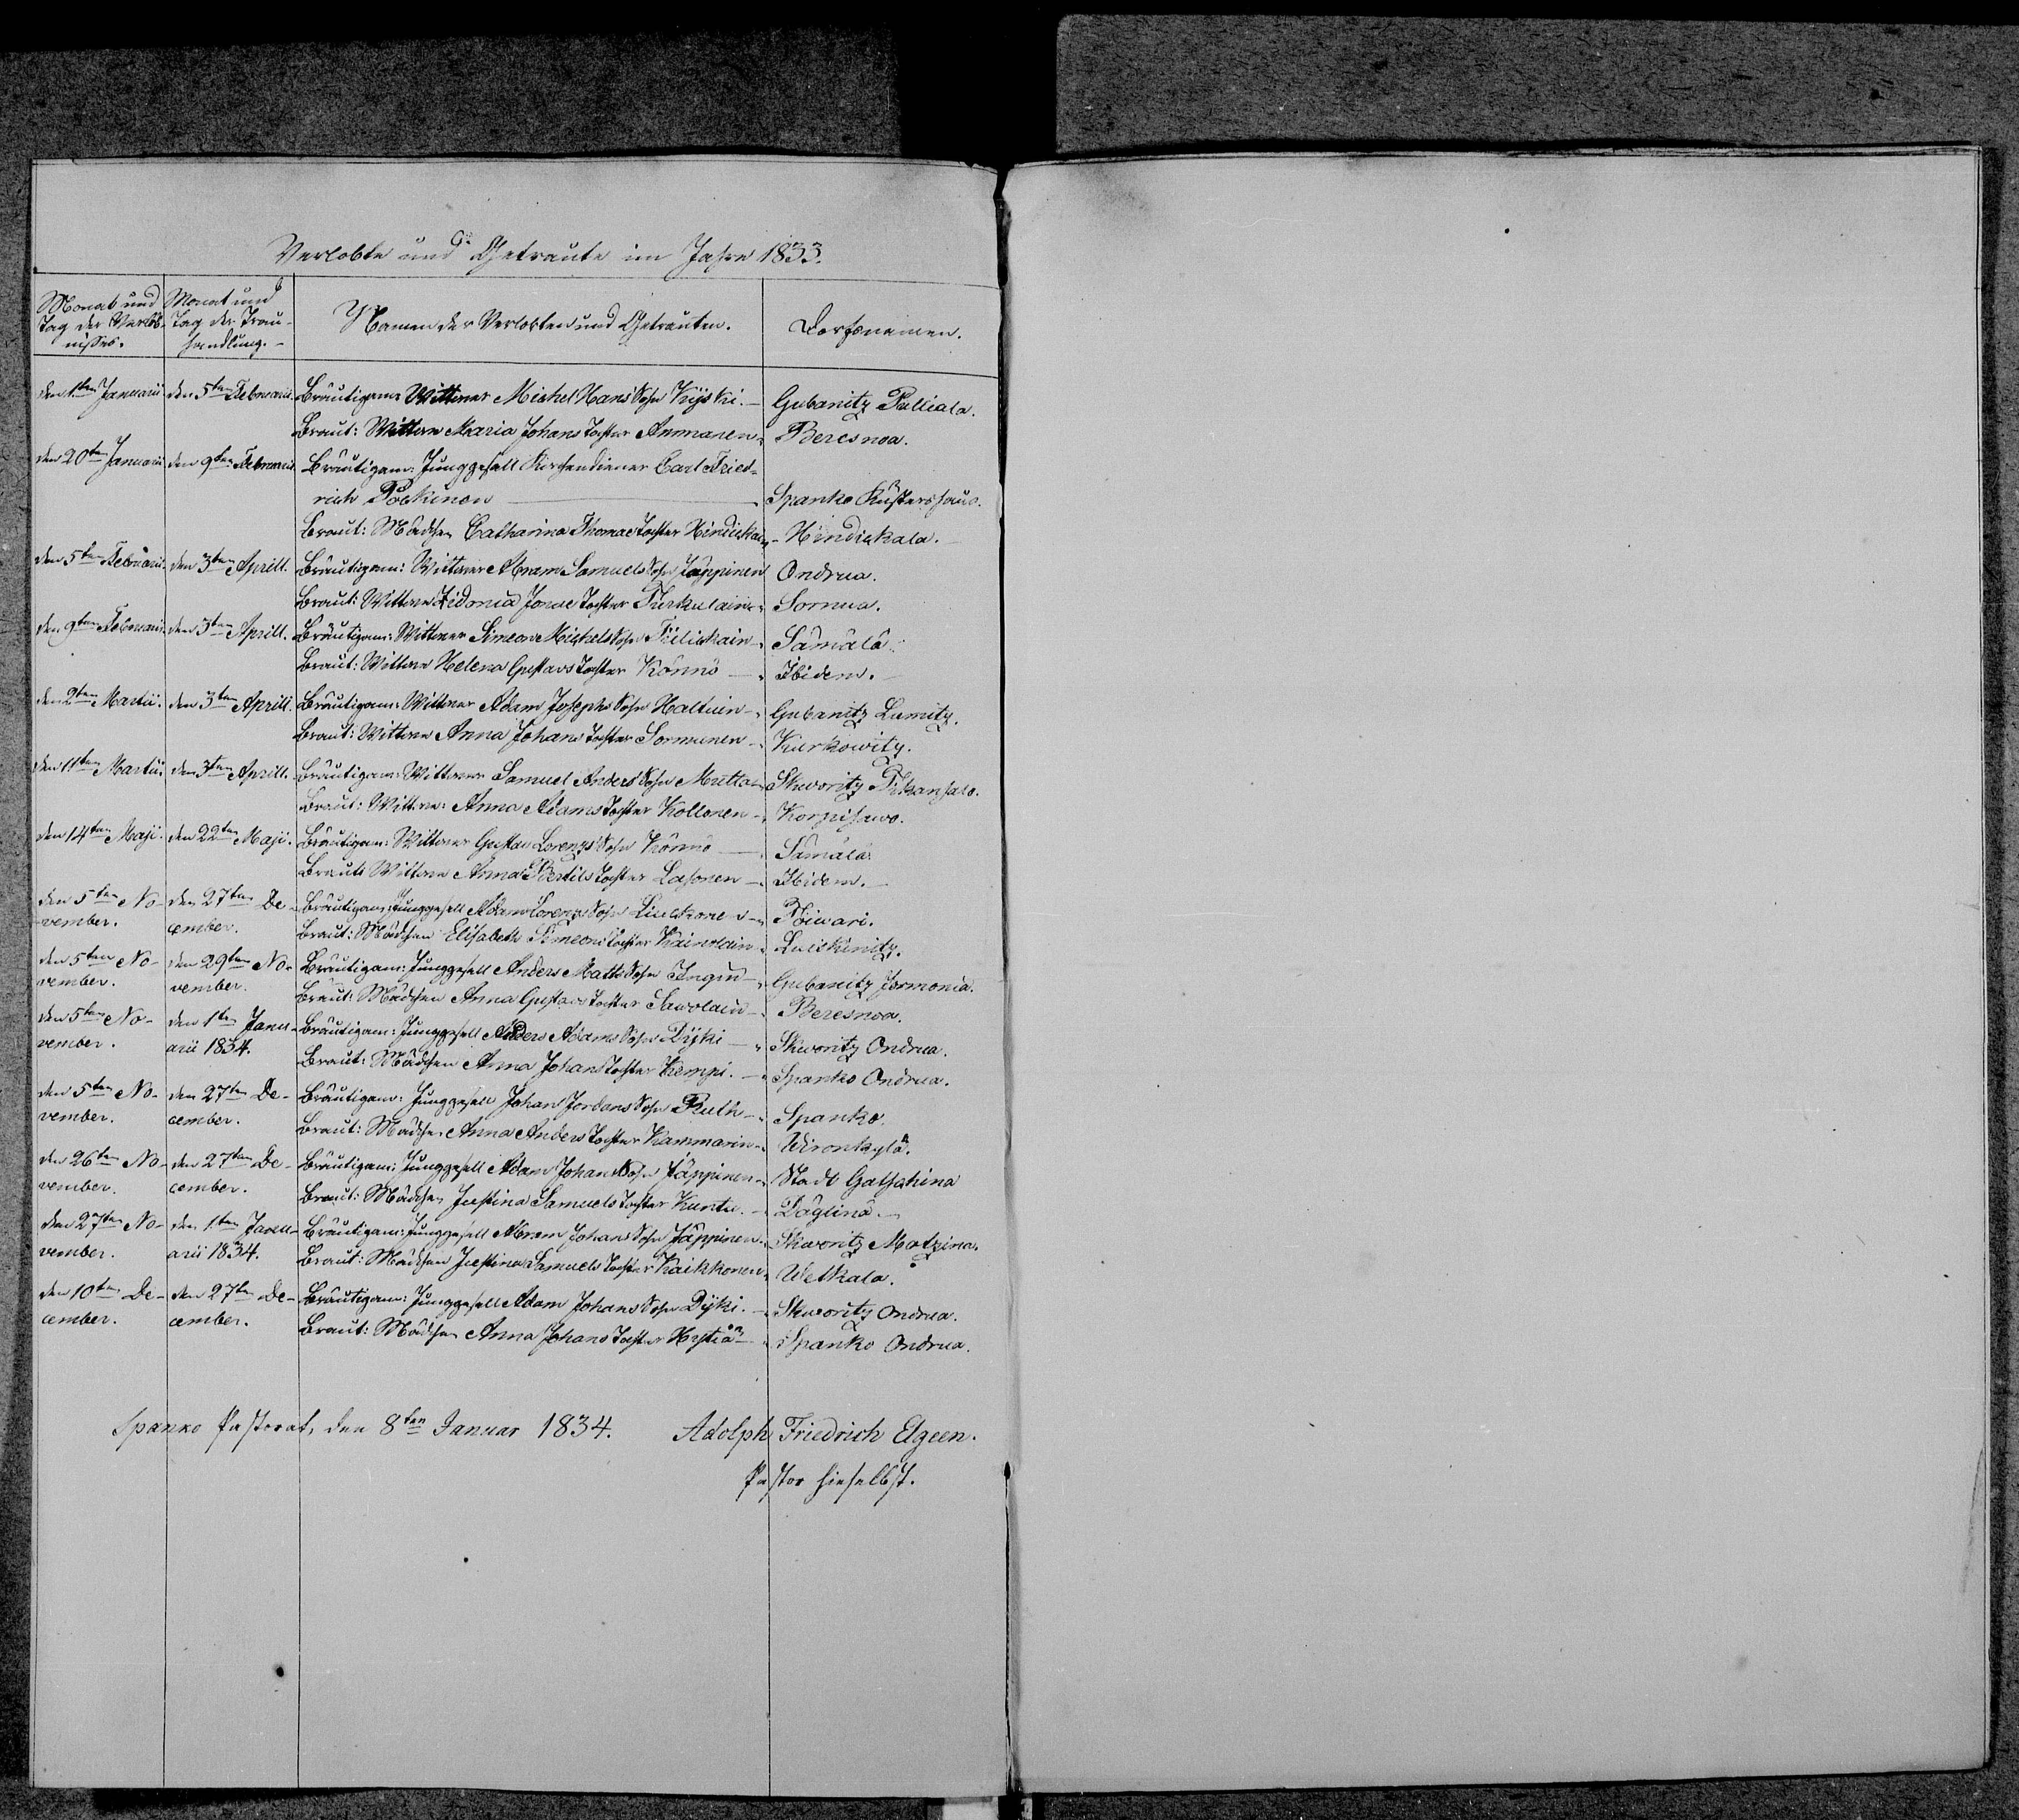 Verlobte und Getraute im Jahre 1833.
Monat und Tag der Verlöbnisses. Monat und Tag der Trauhandlung. Namen der Verlobten und Getrauten. Dorfsnamen.
den 1ten Januarii den 5ten Februarii. Bräutigam: Wittwer Michel Hans Sohn Kyiski. Gubanitz Pulliala.
Braut: Wittwe Maria Johans Tochter Anmanen Beresnoa.
den 20ten Januarii den 9ten Februarii Bräutigam: Junggesell Kirchendiener Carl Fried-
rich Pöckinen Spanko Küstershaus.
Braut: Mädchen Catharina Thomae Tochter Hindickain Hindickala.
den 5ten Februarii. den 3ten Aprill. Bräutigam: Wittwer Abram Samuels Sohn Jäppinen Ondrua.
Braut: Wittwe Fidonia Jonae Tochter Turkulain Sornua.
den 9ten Februarii. den 3ten Aprill. Bräutigam: Wittwer Simeon Michels Sohn Tülickain Sämälä.
Braut: Wittwe Helena Gustavs Tochter Könnö Ibidem.
den 2ten Martii. den 3ten Aprill. Bräutigam: Wittwer Adam Josephs Sohn Haltuin Gubanitz Lumitz.
Braut: Wittwe Anna Johans Tochter Sormunen Kurkowitz.
den 11ten Martii. den 3ten Aprill. Bräutigam: Wittwer Samuel Anders Sohn Mutta Skworitz Pikansalo.
Braut: Wittwe Anna Adams Tochter Kollonen Korpisawo.
den 14ten Maji. den 22ten Maji. Bräutigam: Wittwer Gustav Lorenzs Sohn Könnö Sämälä.
Braut: Wittwe Anna Bertils Tochter Lasonen Ibidem.
den 5ten No- den 27ten De- Bräutigam: Junggesell Adam Lorenzs Sohn Liuckone Pöiwari.
vember. cember. Braut: Mädchen Elisabeth Simeons Tochter Kainolain Luiskinitz.
den 5ten No- den 29ten No- Bräutigam: Junggesell Anders Matts Sohn Ingin Gubanitz Jormonia.
vember. vember. Braut: Mädchen Anna Gustavs Tochter Sawolain Beresnoa.
den 5ten No- den 1ten Janu- Bräutigam: Junggesell Anders Adams Sohn Dyki Skworitz Ondrua.
vember. arii 1834. Braut: Mädchen Anna Johans Tochter Kempi. Spanko Ondrua.
den 5ten No- den 27ten De- Bräutigam: Junggesell Johan Jordans Sohn Ruth Spanko.
vember. cember. Braut: Mädchen Anna Anders Tochter Kammarin Wironkylä.
den 26ten No- den 27ten De- Bräutigam: Junggesell Adam Johans Sohn Jäppinen Stadt Gatschina
vember. cember. Braut: Mädchen Justina Samuels Tochter Kuntu. Däglinä.
den 27ten No- den 1ten Janu- Bräutigam: Junggesell Abram Johans Sohn Jäppinen. Skworitz Motzina.
vember. arii 1834. Braut: Mädchen Justina Samuels Tochter Kaikkonen Wetkala.
den 10ten De- den 27ten De- Bräutigam: Junggesell Adam Johans Sohn Dyki. Skworitz Ondrua.
cember. cember. Braut: Mädchen Anna Johans Tochter Hystiä Spanko Ondrua.
Spanko Pastorat, den 8ten Januar 1834. Adolph Friedrich Elgeen.
Pastor hieselbst.